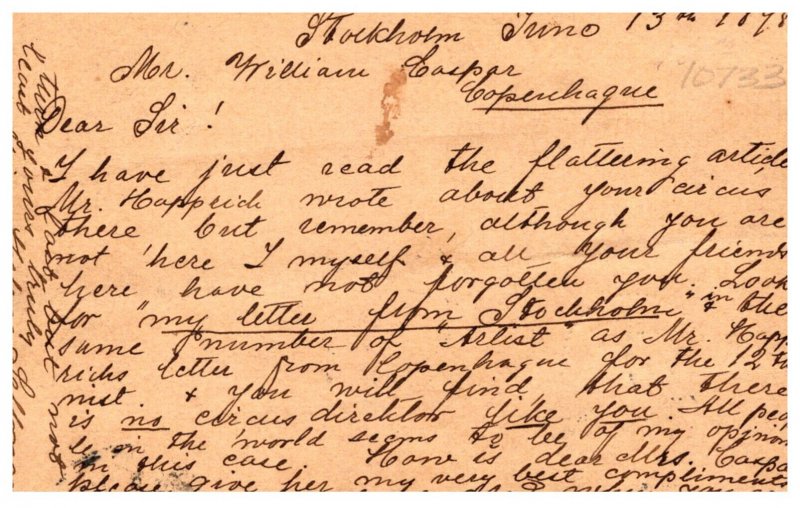 Stockholm Juno 13th 1878
10733
Mr. William Caspar
Copenhague
Dear Sir!
I have just read the flattering article
Mr. Happrich wrote about your circus
there but remember, although you are
not here I myself & all your friends
here have not forgotten you. Look
for "my letter from Stockholm" in the
same number of "Artist" as Mr. Happ
richs letter from Copenhague for the 12 th
inst & you will find that there
is no circus direktor like you. All peo
le in the world seems to be of my opinion
in this case. How is dear Mrs. Caspar
please give her my very best compliments
yours truly